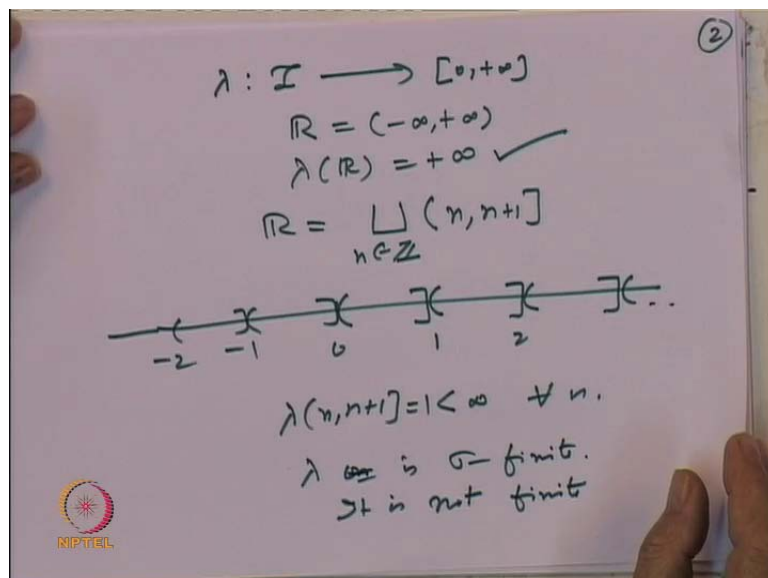 2
λ : I ⟶ [0, +∞]
ℝ = (-∞, +∞)
λ(ℝ) = +∞ ✓
ℝ = ⨆ (n, n+1]
n∈ℤ
-2 -1 0 1 2 ...
λ(n, n+1] = 1 < ∞ ∀ n.
λ is σ- finit.
It is not finit
NPTEL